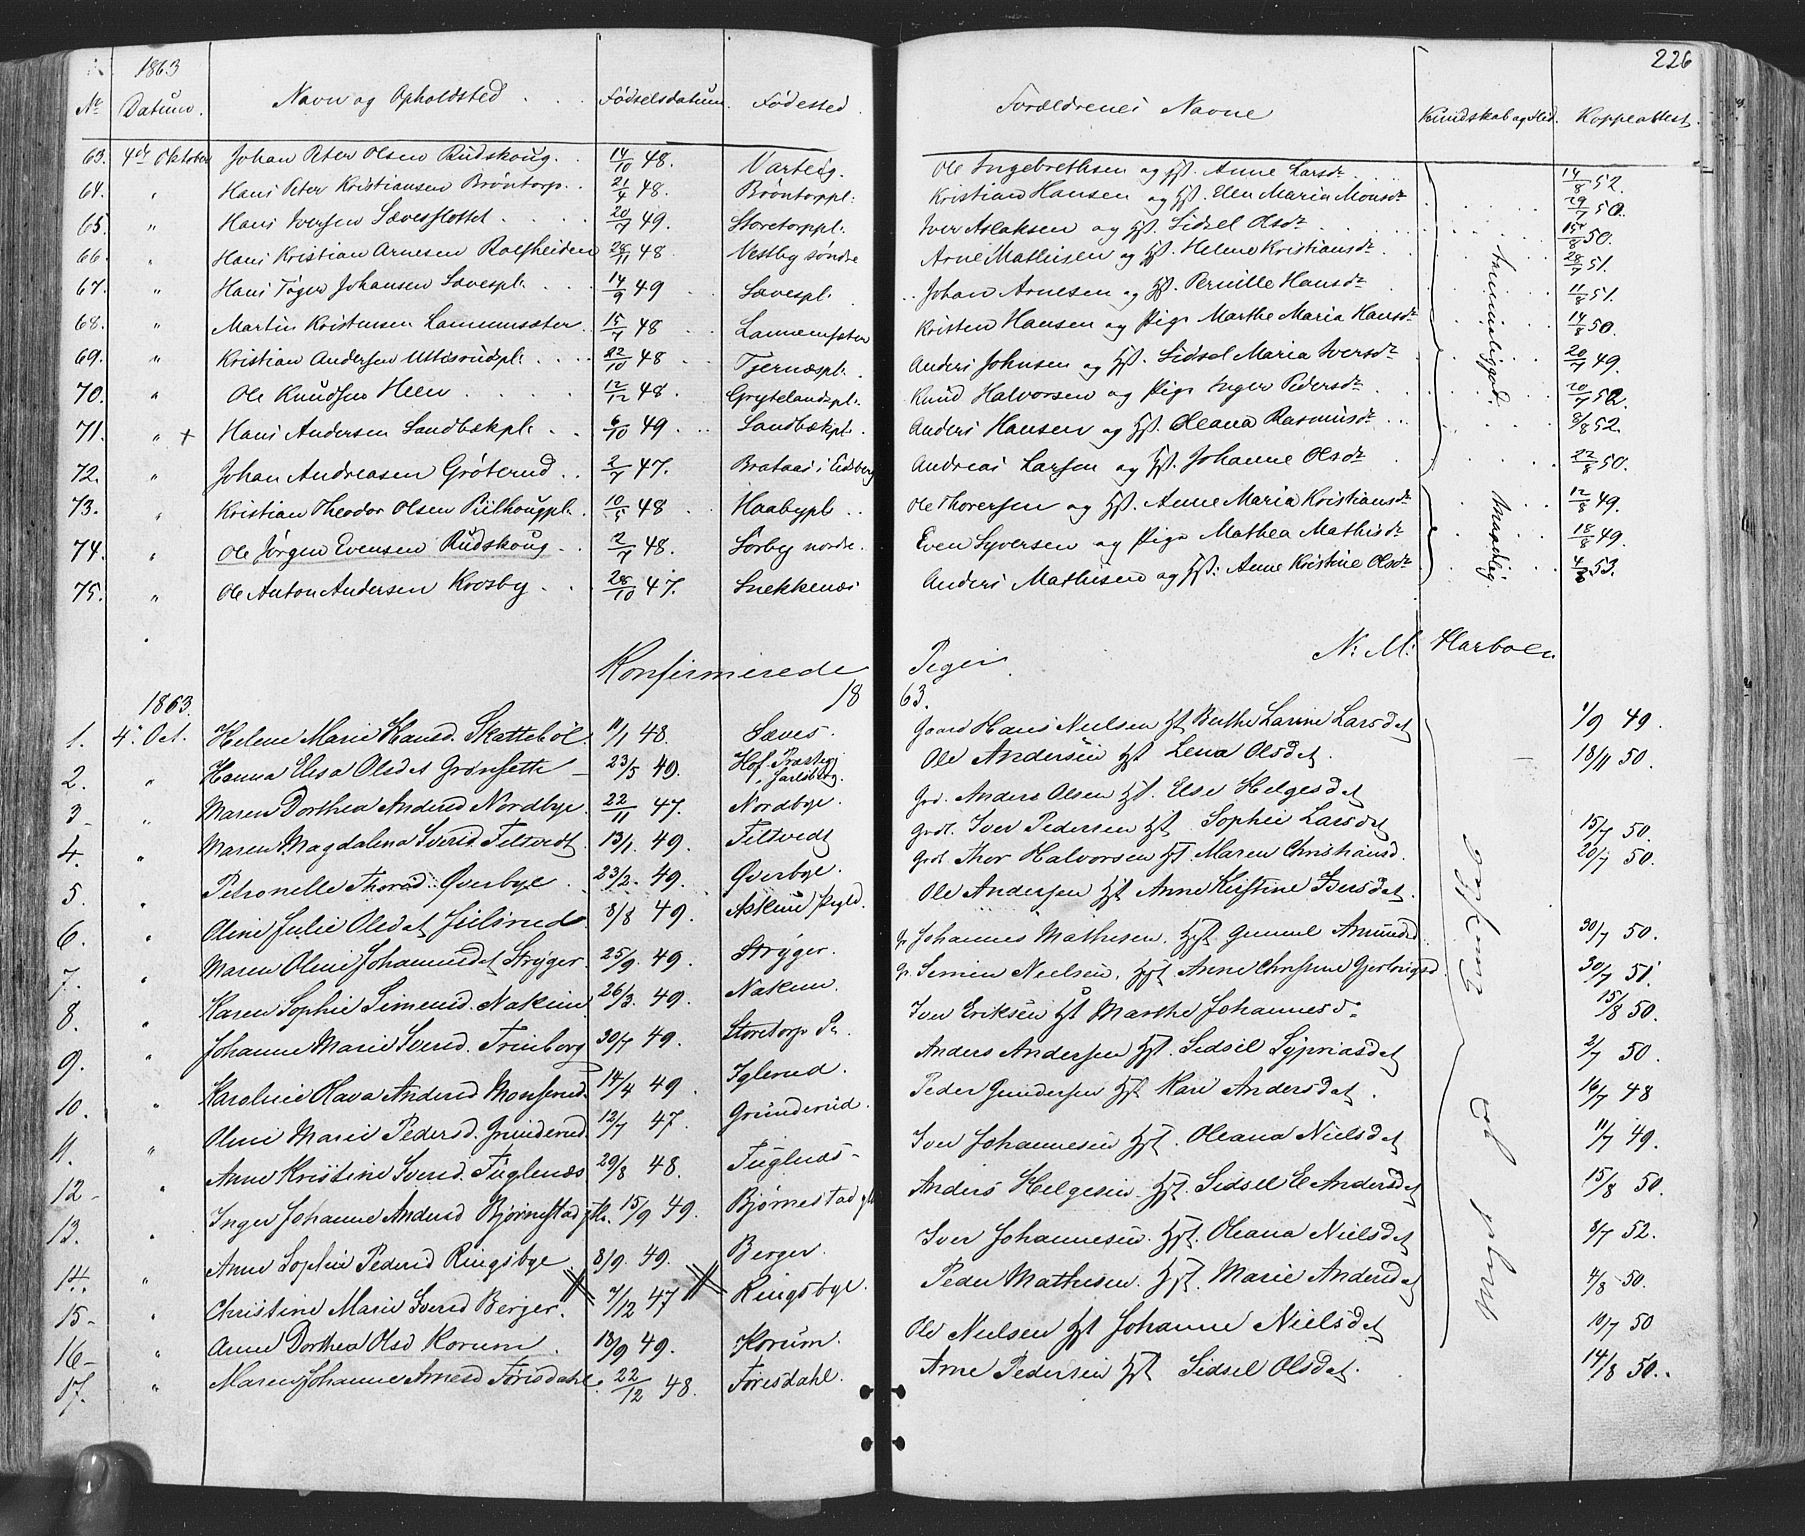 1863
226
No Datum. Navn og Opholdsted Fødselsdatum Fødested. Forældrenes Navne Kundskab og Flid. Koppeattest.
63. 4de Oktober Johan Peter Olsen Rudskoug. 14/10 48. Varteig. Ole Ingebrethsen og Anne Larsdr 14/8 52.
64. " Hans Peter Kristiansen Brøntorp. 21/4 48. Brøntorppl. Kristian Hansen og Ellen Maria Monsdr 29/7 50.
65. " Hans Iversen Sævesslottet 20/7 49 Storetorppl. Iver Aslaksen og Sidsel Olsdr 15/8 50.
66. " Hans Kristian Arnesen Rolfheiden 28/11 48 Vestby søndre Arne Mathisen og Helene Kristiansdr 28/7 51.
67. " Hans Tøger Johansen Sævespl. 14/9 49 Sævespl. Johan Arnesen og Pernille Hansdr 11/8 51.
68. " Martin Kristensen Lannemsæter 15/7 48 Lannemsæter Kristen Hansen og Pige Marthe Maria Hansdr 14/8 50.
69. " Kristian Andersen Uttisrudpl. 22/10 48 Tjernæspl. Anders Johnsen og Sidsel Maria Iversdr 20/7 49.
70. " Ole Knudsen Heen 12/12 48 Grytelandspl. Knud Halvorsen og Pige Inger Pedersdr 20/7 52.
71. " + Hans Andersen Sandbækpl. 6/10 49 Sandbækpl. Anders Hansen og Oleana Rasmusdr 8/8 52.
72. " Johan Andreasen Grøterud 2/7 47. Brataas i Eidsberg Andreas Larsen og Johanne Olsdr 22/8 50.
73. " Kristian Theodor Olsen Piilhougpl. 10/5 48 Haabypl. Ole Thoresen og Anne Maria Kristiansdr 12/8 49.
74. " Ole Jørgen Evensen Rudskoug 2/7 48. Sørby nordre. Even Syversen og Pige Mathea Mathisdr 18/8 49.
75. " Ole Anton Andersen Krosby 28/10 47. Snekkenæs Anders Mathisen og Anne Kristine Olsdr 4/8 53.
N: M: Harboe
Konfirmerede Piger
1863.
1863.
1. 4. Oct. Helene Marie Hansd. Skattebøl 11/1 48. Sæves. Gaard Hans Nielsen Berthe Larine Larsdet 1/9 49.
2. " Hanna Elisa Olsdet Grønsette 23/5 40. Hof Præstegj Jarlsberg. Ole Andersen Lena Olsdet 18/11 50.
3 " Maren Dorthea Andersd Nordbye 22/11 47. Nordbye. Grd. Anders Olsen Else Helgesdet
4. " Maren Magdalena Iversd. Feltvedt 13/1 49. Feltvedt Grdb. Iver Pedersen Sophie Larsdet 15/7 50.
5. " Petronelle Thorsd. Øverbye 23/2. 49. Øverbye. Grdb Thor Halvorsen Maren Christiansd. 20/7 50.
6. " Oline Julie Olsdet Juilsrud 8/8 49. Askim Pgld. Ole Andersen Anne Kirstine Iversdet
7. " Maren Oline Johannesdet Stryger 25/9. 49. Stryger. Johannes Mathesen. Gunnil Amundsd 30/7 50.
8. " Karen Sophie Simensd. Nakim 26/3. 49. Nakim. Simen Nielsen. Anne Christine Gjerbrigsd. 30/7 51
9. " Johanne Marie Iversd. Trinborg 30/7 49. Storetorp Pr. Iver Eriksen Marthe Johannesd. 15/8 50.
10. " Karoline Olava Andersd Monserud 14/4 49. Iglerud. Anders Andersen Sidsel Sypriasdet 2/7 50.
11. " Oline Marie Pedersd. Grinderud 12/7 47. Gründerud. Peder Gundersen Kari Andersdet. 16/7 48
12 " Anne Kristine Iversd. Fuglenæs 29/8 48. Fuglenæs Iver Johannesen. Oleana Nielsdet 11/7 49.
13. " Inger Johanne Andersd Bjørnestad 15/9 49. Bjørnestad Anders Helgesen. Sidsel E. Andersdet 15/8 50.
14. " Anne Sophie Pedersd Ringsbye 8/9. 49. Berger. Iver Johannesen. Oleana Nielsdet 8/7 52.
15. " Christine Marie Iversd Berger. 7/12 47 Ringsbye. Peder Mathesen. Marie Andersdet 4/8 50.
16 " Anne Dorthea Olsd Korum. 18/9 49. Korum. Ole Nielsen Johanne Nielsdet 10/7 50
17. " Maren Johanne Arnesd Førisdahl. 22/12 48. Førisdahl. Arne Pedersen Sidsel Olsdet. 14/8 50.